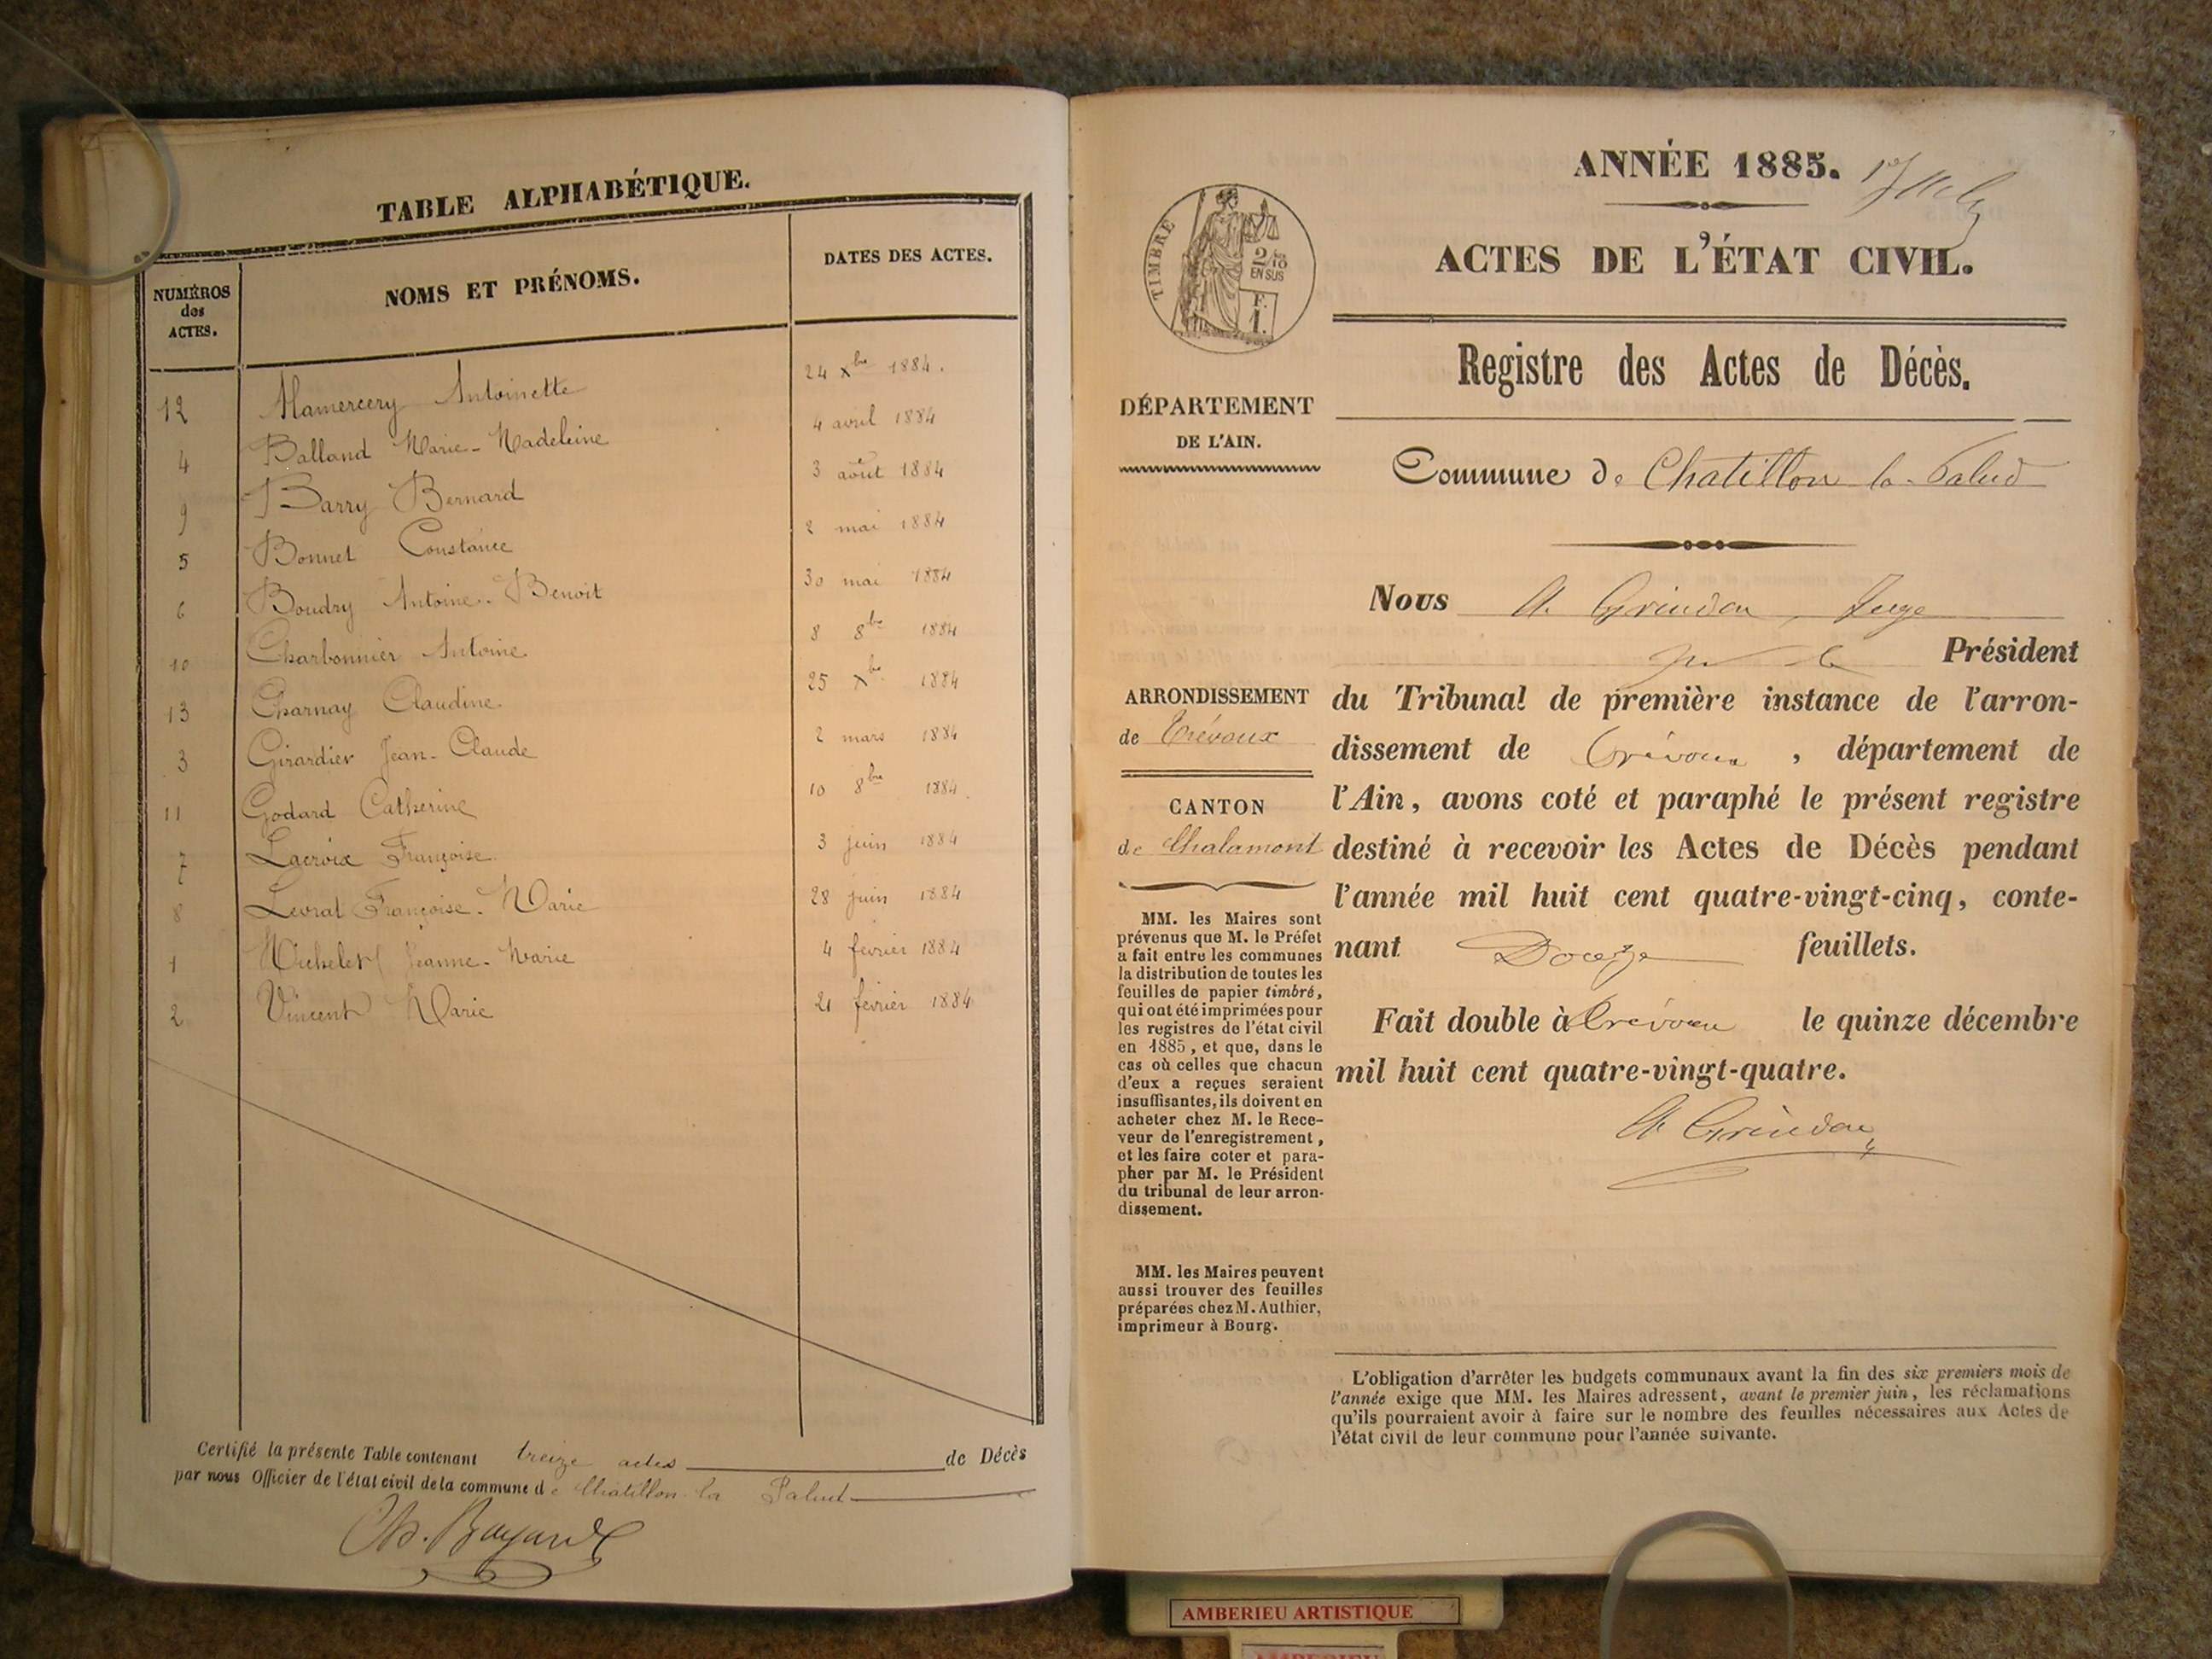 TABLE ALPHABÉTIQUE.
NUMÉROS des ACTES.
NOMS ET PRÉNOMS.
DATES DES ACTES.
12 Alamercery Antoinette 24 Xbre 1884.
4 Balland Marie-Madeleine 4 avril 1884
9 Barry Bernard 3 août 1884
5 Bonnet Constance 2 mai 1884
6 Boudry Antoine-Benoit 30 mai 1884
10 Charbonnier Antoine 8 8bre 1884
13 Charnay Claudine 25 Xbre 1884
3 Girardier Jean-Claude 2 mars 1884
11 Godard Catherine 10 8bre 1884.
7 Lacroix Françoise 3 juin 1884
8 Levrat Françoise-Marie 28 juin 1884
1 Michelet Jeanne-Marie 4 février 1884
2 Vincent Marie 21 février 1884
Certifié la présente Table contenant treize actes de Décès
par nous Officier de l'état civil de la commune de Chatillon la Palud
Ch. Bayard
ANNÉE 1885.
ACTES DE L'ÉTAT CIVIL.
TIMBRE
2/10 EN SUS
F. 1.
Registre des Actes de Décès.
DÉPARTEMENT
DE L'AIN.
Commune de Chatillon la Palud
Nous A. Grindon, Juge
Président
du Tribunal de première instance de l'arron-
dissement de Trévoux, département de
l'Ain, avons coté et paraphé le présent registre
destiné à recevoir les Actes de Décès pendant
l'année mil huit cent quatre-vingt-cinq, conte-
nant Douze feuillets.
Fait double à Trévoux le quinze décembre
mil huit cent quatre-vingt-quatre.
A Grindon
ARRONDISSEMENT
de Trévoux
CANTON
de Chalamont
MM. les Maires sont
prévenus que M. le Préfet
a fait entre les communes
la distribution de toutes les
feuilles de papier timbré,
qui ont été imprimées pour
les registres de l'état civil
en 1885, et que, dans le
cas où celles que chacun
d'eux a reçues seraient
insuffisantes, ils doivent en
acheter chez M. le Rece-
veur de l'enregistrement,
et les faire coter et para-
pher par M. le Président
du tribunal de leur arron-
dissement.
MM. les Maires peuvent
aussi trouver des feuilles
préparées chez M. Authier,
imprimeur à Bourg.
L'obligation d'arrêter les budgets communaux avant la fin des six premiers mois de
l'année exige que MM. les Maires adressent, avant le premier juin, les réclamations
qu'ils pourraient avoir à faire sur le nombre des feuilles nécessaires aux Actes de
l'état civil de leur commune pour l'année suivante.
AMBERIEU ARTISTIQUE
AMBERIEU